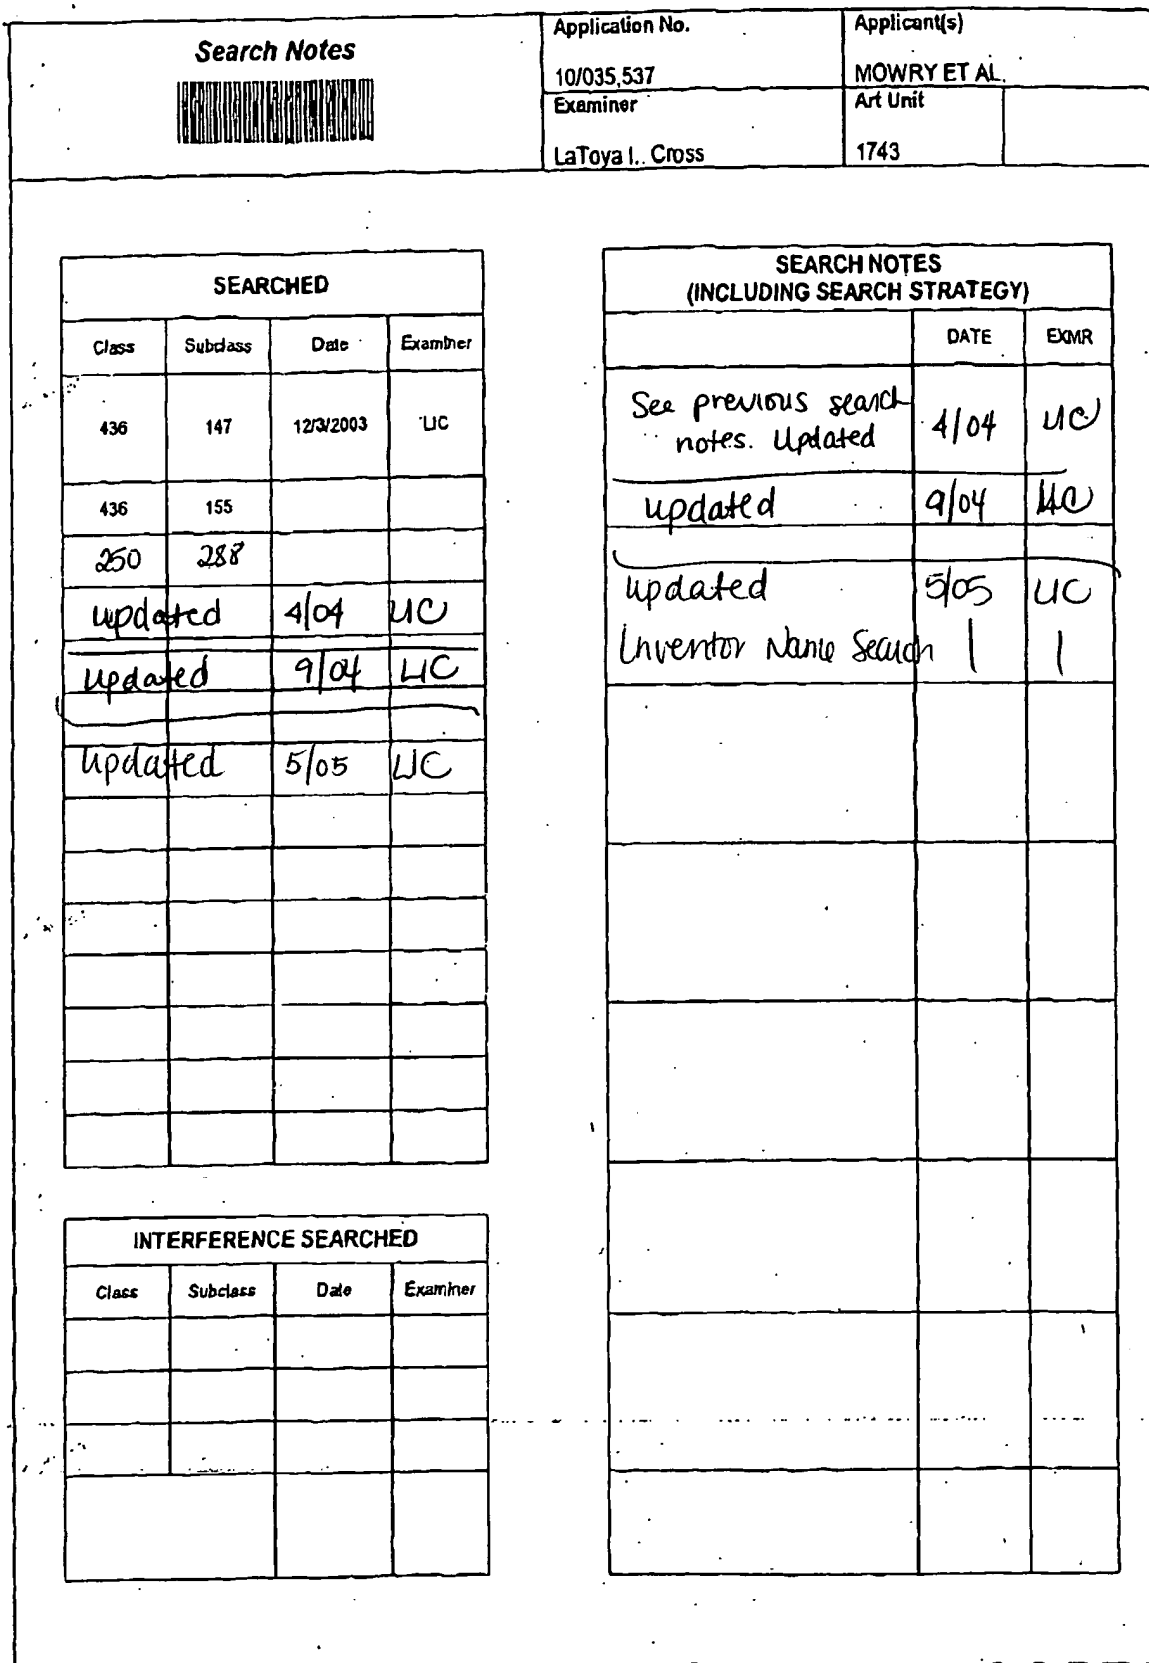 Search Notes
Application No.
10/035,537
Applicant(s)
MOWRY ET AL.
Examiner
LaToya I. Cross
Art Unit
1743
SEARCHED
Class Subclass Date Examiner
436 147 12/3/2003 LIC
436 155
250 288
updated 4/04 LIC
updated 9/04 LIC
updated 5/05 LIC
INTERFERENCE SEARCHED
Class Subclass Date Examiner
SEARCH NOTES
(INCLUDING SEARCH STRATEGY)
DATE EXMR
See previous search
notes. Updated 4/04 LIC
updated 9/04 LIC
updated 5/05 LIC
Inventor Name Search | |